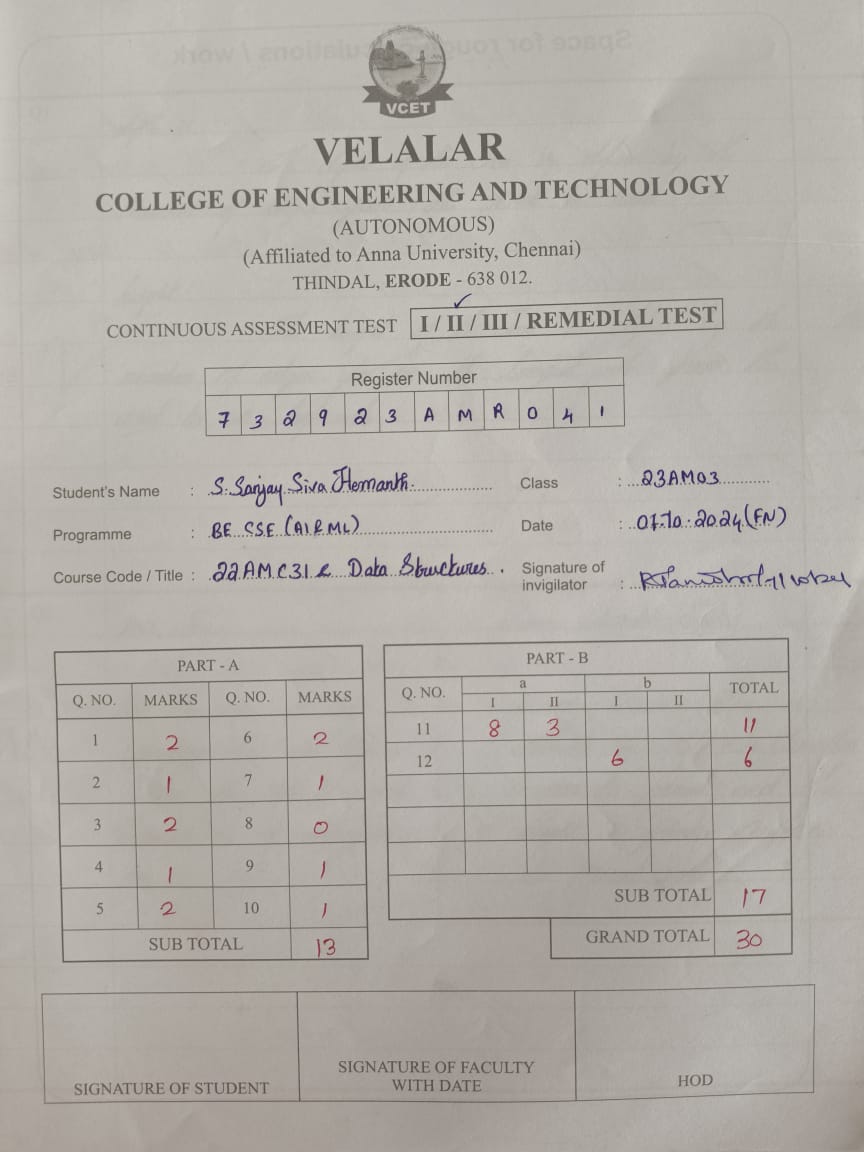 VCET
VELALAR
COLLEGE OF ENGINEERING AND TECHNOLOGY
(AUTONOMOUS)
(Affiliated to Anna University, Chennai)
THINDAL, ERODE - 638 012.
CONTINUOUS ASSESSMENT TEST I / II / III / REMEDIAL TEST
Register Number
7 3 2 9 2 3 A M R 0 4 1
Student's Name : S. Sanjay Siva Hemanth. Class : 23AM03
Programme : BE CSE (AI & ML) Date : 07.10.2024 (FN)
Course Code / Title : 22AMC31 & Data Structures. Signature of
invigilator :
PART - A
Q. NO. MARKS Q. NO. MARKS
1 2 6 2
2 1 7 1
3 2 8 0
4 1 9 1
5 2 10 1
SUB TOTAL 13
PART - B
Q. NO. a b TOTAL
I II I II
11 8 3 11
12 6 6
SUB TOTAL 17
GRAND TOTAL 30
SIGNATURE OF STUDENT
SIGNATURE OF FACULTY
WITH DATE
HOD